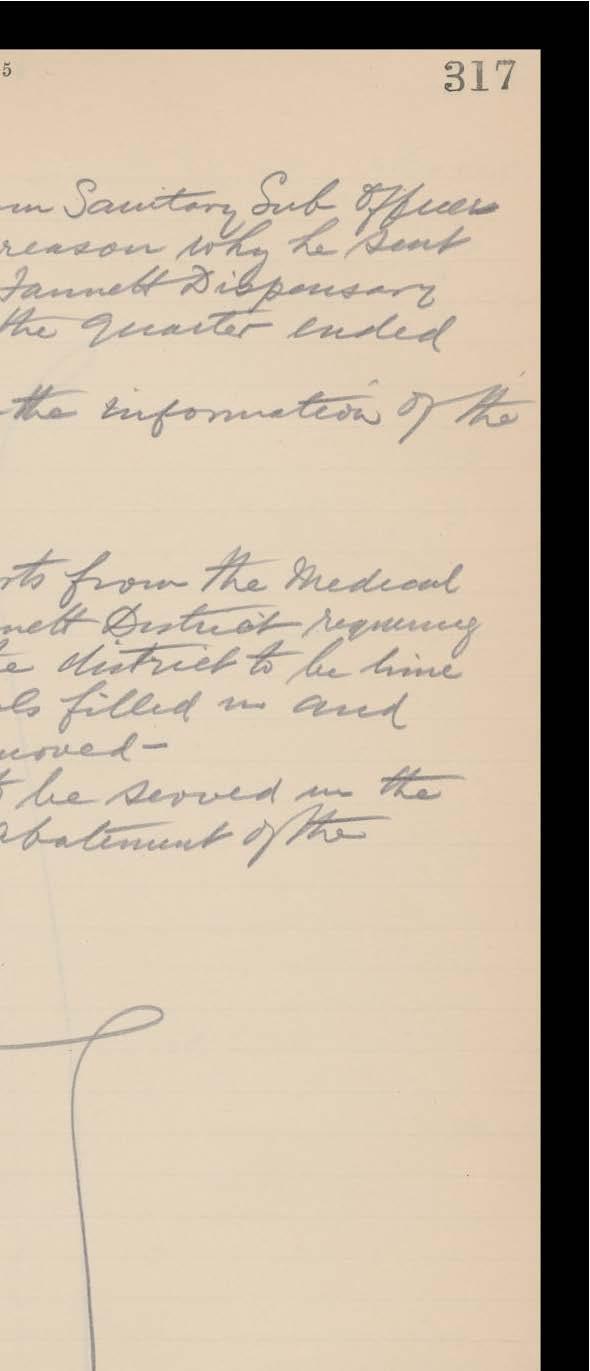 5
317
om Sanitary Sub Officer
reason why he sent
Fannett Dispensary
the quarter ended
the information of the
rts from the Medical
nett District requiring
e district to be lime
ls filled in and
moved—
to be served in the
abatement of the